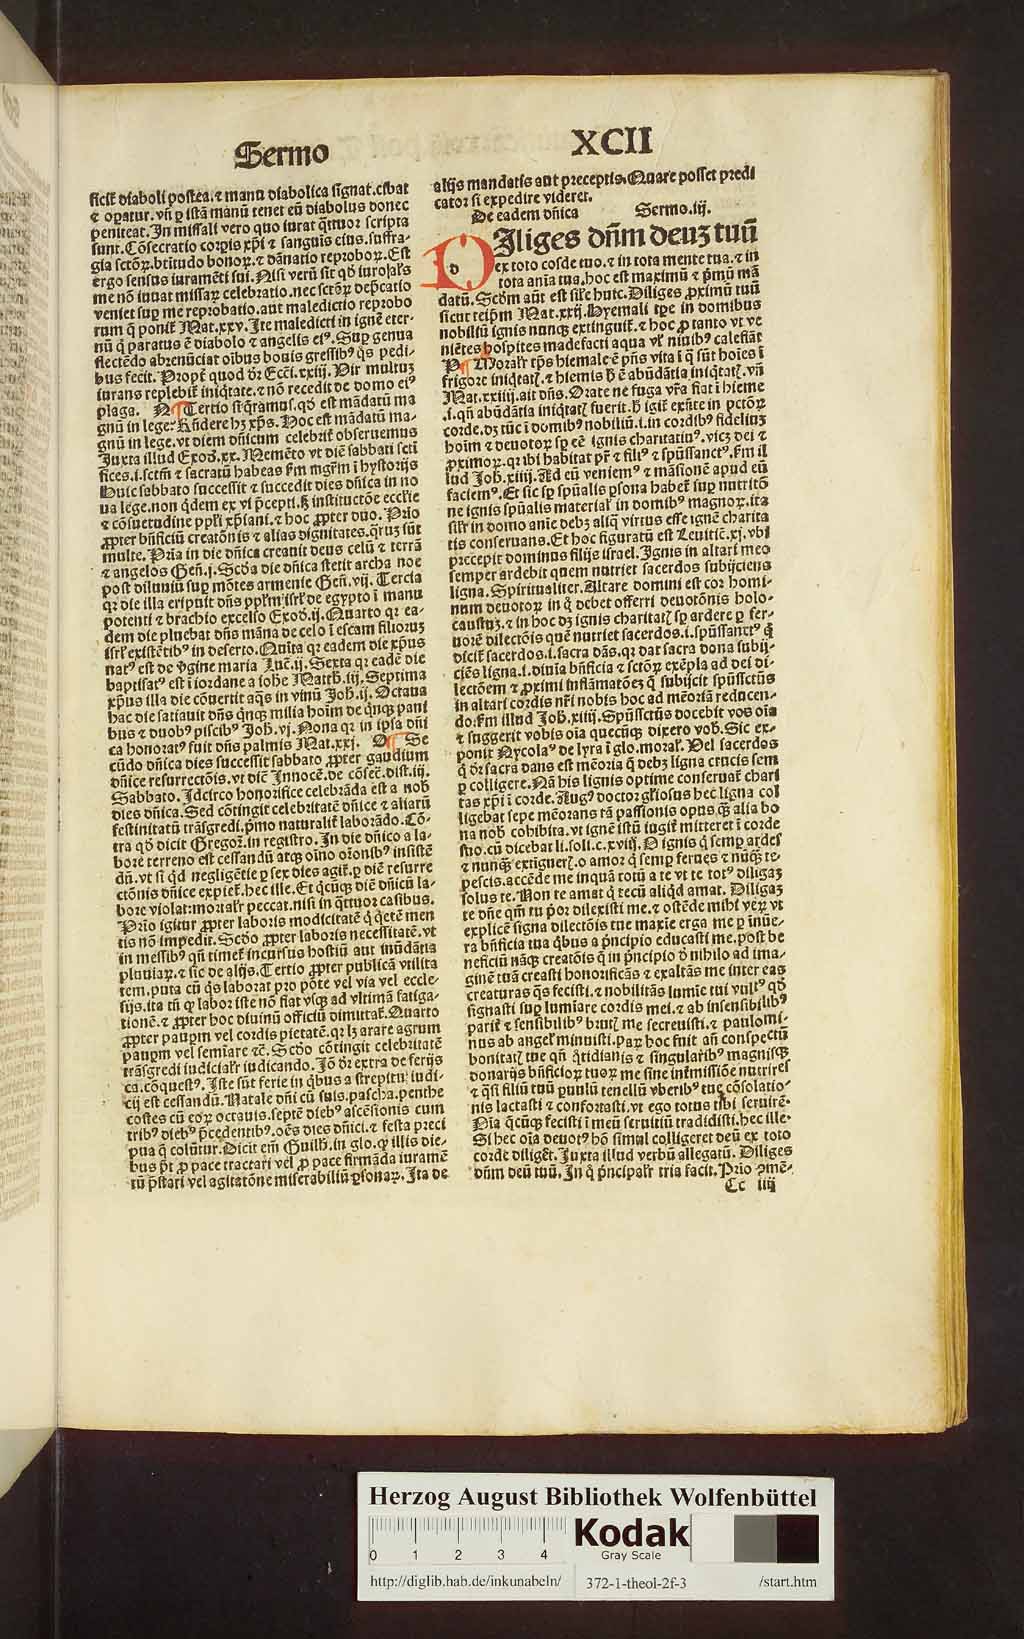 Sermo
XCII
ficit̄ diaboli postea. ⁊ manu diabolica signat. cibat
⁊ oꝑatur. vñ ꝑ istā manū tenet eū diabolus donec
peniteat. In missali vero quo iurat q̈ttuor scripta
sunt. Cōsecratio corꝑis xp̄i ⁊ sanguis eius. suffra-
gia sctōꝝ. btītudo bonoꝝ. ⁊ dānatio reproboꝝ. Est
ergo sensus iuramēti sui. Nisi verū sit qđ iuro
me nō iuuat missaꝝ celebratio. nec sctōꝝ dep̄catio
veniet sup me reprobatio. aut maledictio reprobo
rum q̄ ponit̄ Mat. xxv. Ite maledicti in ignē eter-
nū q̄ paratus ē diabolo ⁊ angelis eiꝰ. Suꝑ genua
flectēdo abrenūciat oībus bonis gressibꝰ q̄s pedi-
bus fecit. Propt̄ quod dr̄ Eccī. xxiij. Vir multuz
iurans replebit̄ iniq̄tate. ⁊ nō recedit de domo eiꝰ
plaga. N Tertio q̄ramus. qđ est mādatū ma
gnū in lege. Rn̄dere hꝫ xp̄s. Hoc est mādatū ma-
gnū in lege. vt diem dn̄icum celebrit̄ obseruemus
Juxta illud Exod. xx. Memēto vt diē sabbati scti
fices. i. sctm̄ ⁊ sacratū habeas fm̄ mgr̄m ī hystorijs
Huic sabbato successit ⁊ succedit dies dn̄ica in no
ua lege. non q̄dem ex vi p̄cepti. sꝫ institutōe ecclie
⁊ cōsuetudine ppl̄i xp̄iani. ⁊ hoc ꝓpter duo. Prīo
ꝓpter bn̄ficiū creatōnis ⁊ alias dignitates. q̄ruꝫ sūt
multe. Prīa in die dn̄ica creauit deus celū ⁊ terrā
⁊ angelos Gen̄. j. Scđa die dn̄ica stetit archa noe
post diluuiū suꝑ mōtes armenie Gen̄. vij. Tercia
qꝛ die illa eripuit dn̄s ppl̄m isrl̄ de egypto ī manu
potenti ⁊ brachio excelso Exod. ij. Quarto qꝛ ea-
dem die pluebat dn̄s māna de celo ī escam filioruz
isrl̄ existētibꝰ in deserto. Quīta qꝛ eadem die xp̄us
natꝰ est de ꝟgine maria Luc̄. ij. Sexta qꝛ eadē die
baptisatꝰ est ī iordane a iohe Matth. iij. Septima
xp̄us illa die cōuertit aq̄s in vinū Joh. ij. Octaua
hac die satiauit dn̄s q̄nqꝫ milia hoīm de q̄nqꝫ pani
bus ⁊ duobꝰ piscibꝰ Joh. vj. Nona qꝛ in ipsa dn̄i
ca honoratꝰ fuit dn̄s palmis Mat. xxj. O Se
cūdo dn̄ica dies successit sabbato ꝓpter gaudium
dn̄ice resurrectōis. vt diē Innocē. de cōsec̄. dist. iij.
Sabbato. Idcirco honorifice celebrāda est a nob̄
dies dn̄ica. Sed cōtingit celebritatē dn̄ice ⁊ aliarū
festinitatū trāsgredi. p̄mo naturalit̄ laborādo. Cō-
tra qđ dicit Gregor̄. in registro. In die dn̄ico a la-
bore terreno est cessandū atqꝫ oīno oronibꝰ insistē
dū. vt si q̄d negligētie ꝑ sex dies agit̄. ꝑ diē resurre
ctōnis dn̄ice expiet̄. hec ille. Et q̄cūqꝫ diē dn̄icū la-
bore violat: mortalr̄ peccat. nisi in q̄ttuor casibus.
Prīo igitur ꝓpter laboris modicitatē q̄ q̄etē men
tis nō impedit. Scđo ꝓpter laboris necessitatē. vt
in messibꝰ qn̄ timet̄ incursus hostiū aut inūdātia
pluuiaꝝ. ⁊ sic de alijs. Tertio ꝓpter publicā vtilita
tem. puta cū q̄s laborat pro pōte vel via vel eccle-
sijs. ita tn̄ q̄ labor iste nō fiat vsqꝫ ad vltimā fatiga-
tionē. ⁊ ꝓpter hoc diuinū officiū dimittat̄. Quarto
ꝓpter pauꝑm vel cordis pietatē. qꝛ lꝫ arare agrum
pauꝑm vel semīare ⁊c̄. Scđo cōtingit celebritatē
trāsgredi iudicialr̄ iudicando. Jō dr̄ extra de ferijs
ca. cōquestꝰ. Iste sūt ferie in q̄bus a strepitu iudi-
cij est cessandū. Natale dn̄i cū suis. pascha. penthe
costes cū eoꝝ octauis. septē diebꝰ ascēsionis cum
tribꝰ diebꝰ p̄cedentibꝰ. oēs dies dn̄ici. ⁊ festa preci
pua q̄ colūtur. Dicit em̄ Guilh. in glo. q̄ illis die-
bus p̄t ꝓ pace tractari vel ꝓ pace firmāda iuramē
tū p̄stari vel agitatōne miserabiliū ꝑsonaꝝ. Ita de
alijs mandatis aut preceptis. Quare posset predi
cator si expedire videret.
De eadem dn̄ica Sermo. iij.
DIliges dn̄m deuz tuū
ex toto corde tuo. ⁊ in tota mente tua. ⁊ in
tota anīa tua. hoc est maximū ⁊ p̄mū mā
datū. Scđm aūt est sil̄e huic. Diliges ꝓximū tuū
sicut teip̄m Mat. xxij. Hyemali tꝑe in domibus
nobiliū ignis nunqꝫ extinguit̄. ⁊ hoc ꝓ tanto vt ve
niētes hospites madefacti aqua vl̄ niuibꝰ calefiāt
P Moralr̄ tp̄s hiemale ē pn̄s vita ī q̄ sūt hoīes ī
frigore iniq̄tatꝭ. ⁊ hiemis hꝫ ē abūdātia iniq̄tatꝭ. vn̄
Mat. xxiiij. ait dn̄s. Orate ne fuga vr̄a fiat ī hieme
.i. qn̄ abūdātia iniq̄tatꝭ fuerit. hꝫ igit̄ exn̄te in pctōꝝ
corde. dꝫ tūc ī domibꝰ nobiliū. i. in cordibꝰ fideliuz
hoīm ⁊ deuotoꝝ sꝑ eē ignis charitatiuꝰ. vicꝫ dei ⁊
ꝓximoꝝ. qꝛ ibi habitat pr̄ ⁊ filiꝰ ⁊ spūssanctꝰ. fm̄ il
lud Joh. xiiij. Ad eū veniemꝰ ⁊ māsionē apud eū
faciemꝰ. Et sic sꝑ spūalis ꝑsona habet̄ suꝑ nutritō
ne ignis spūalis material̄ in domibꝰ magnoꝝ. ita
silr̄ in domo anīe debꝫ aliq̄ virtus esse ignē charita
tis conseruans. Et hoc figuratū est Leuitic̄. xj. vbi
precepit dominus filijs israel. Ignis in altari meo
semper ardebit quem nutriet sacerdos subijciens
ligna. Spiritualiter. Altare domini est cor homi-
num deuotoꝝ in q̄ debet offerri deuotōnis holo-
caustuꝫ. ⁊ in hoc dꝫ ignis charitatꝭ sꝑ ardere ꝑ fer-
uorē dilectōis quē nutriet sacerdos. i. spūssanctꝰ q̄
dicit̄ sacerdos. i. sacra dās. qꝛ dat sacra dona subij-
ciēs ligna. i. diuīa bn̄ficia ⁊ sctōꝝ exēpla ad dei di-
lectōem ⁊ ꝓximi inflāmatōeꝫ q̄ subijcit spūssctūs
in altari cordis nr̄i nobis hoc ad mēoriā reducen-
do. fm̄ illud Joh. xiiij. Spūssctūs docebit vos oīa
⁊ suggerit vobis oīa quecūqꝫ dixero vob̄. Sic ex-
ponit Nycolaꝰ de lyra ī glo. moral̄. Vel sacerdos
q̄ dr̄ sacra dans est mēoria q̄ debꝫ ligna crucis sem
ꝑ colligere. Nā his lignis optime conseruat̄ chari
tas xp̄i ī corde. Augꝰ doctor gl̄iosus hec ligna col
ligebat sepe mēorans rā passionis opus qꝫ alia bo
na nob̄ cohibita. vt ignē istū iugit̄ mitteret ī corde
suo. cū dicebat li. soli. c. xviij. O ignis q̄ semꝑ ardes
⁊ nunqꝫ extinguer̄. o amor q̄ semꝑ ferues ⁊ nūqꝫ te-
pescis. accēde me inquā totū a te vt te totꝰ diligaꝫ
solus te. Non te amat q̄ tecū aliq̄d amat. Diligaꝫ
te dn̄e qm̄ tu p̄or dilexisti me. ⁊ ostēde mihi veꝝ vt
explicē signa dilectōis tue maxie erga me ꝑ īnūe-
ra bn̄ficia tua q̄bus a p̄ncipio educasti me. post be
neficiū nāqꝫ creatōis q̄ in p̄ncipio đ nihilo ad ima-
ginē tuā creasti honorificās ⁊ exaltās me inter eas
creaturas q̄s fecisti. ⁊ nobilitās lumīe tui vultꝰ qđ
signasti suꝑ lumīare cordis mei. ⁊ ab insensibilibꝰ
parit̄ ⁊ sensibilibꝰ brutꝭ me secreuisti. ⁊ paulomi-
nus ab angelꝭ minuisti. Paꝝ hoc fuit an̄ conspectū
bonitatꝭ tue qn̄ q̄tidianis ⁊ singularibꝰ magnisqꝫ
donarijs bn̄ficioꝝ tuoꝝ me sine intmissiōe nutrires
⁊ q̄si filiū tuū ꝑuulū tenellū vberibꝰ tue cōsolatio-
nis lactasti ⁊ confortasti. vt ego totus tibi seruirē.
Oīa q̄cūqꝫ fecisti ī meū seruitiū tradidisti. hec ille.
Si hec oīa deuotꝰ hō simul colligeret deū ex toto
corde diliget̄. Juxta illud verbū allegatū. Diliges
dn̄m deū tuū. In q̄ p̄ncipalr̄ tria facit. Prīo ꝯmē-
Cc iij
Herzog August Bibliothek Wolfenbüttel
0 1 2 3 4
Kodak
Gray Scale
http://diglib.hab.de/inkunabeln/ 372-1-theol-2f-3 /start.htm